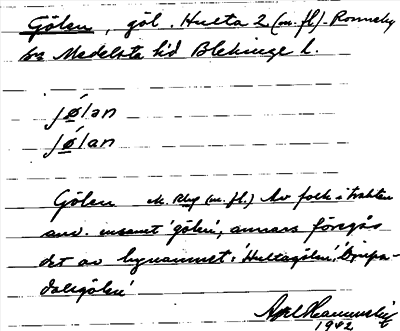 Gölen, göl. Hulta 2 (m. fl.). Ronneby
sn Medelsta hd Blekinge l.
jǿlən
jǿlan
Gölen M. Rbg (m. fl.) Av folk i trakten
anv. ensamt 'gölen', annars föregås
det av bynamnet: 'Hultagölen', 'Djupa-
dalsgölen'
Axel
1942